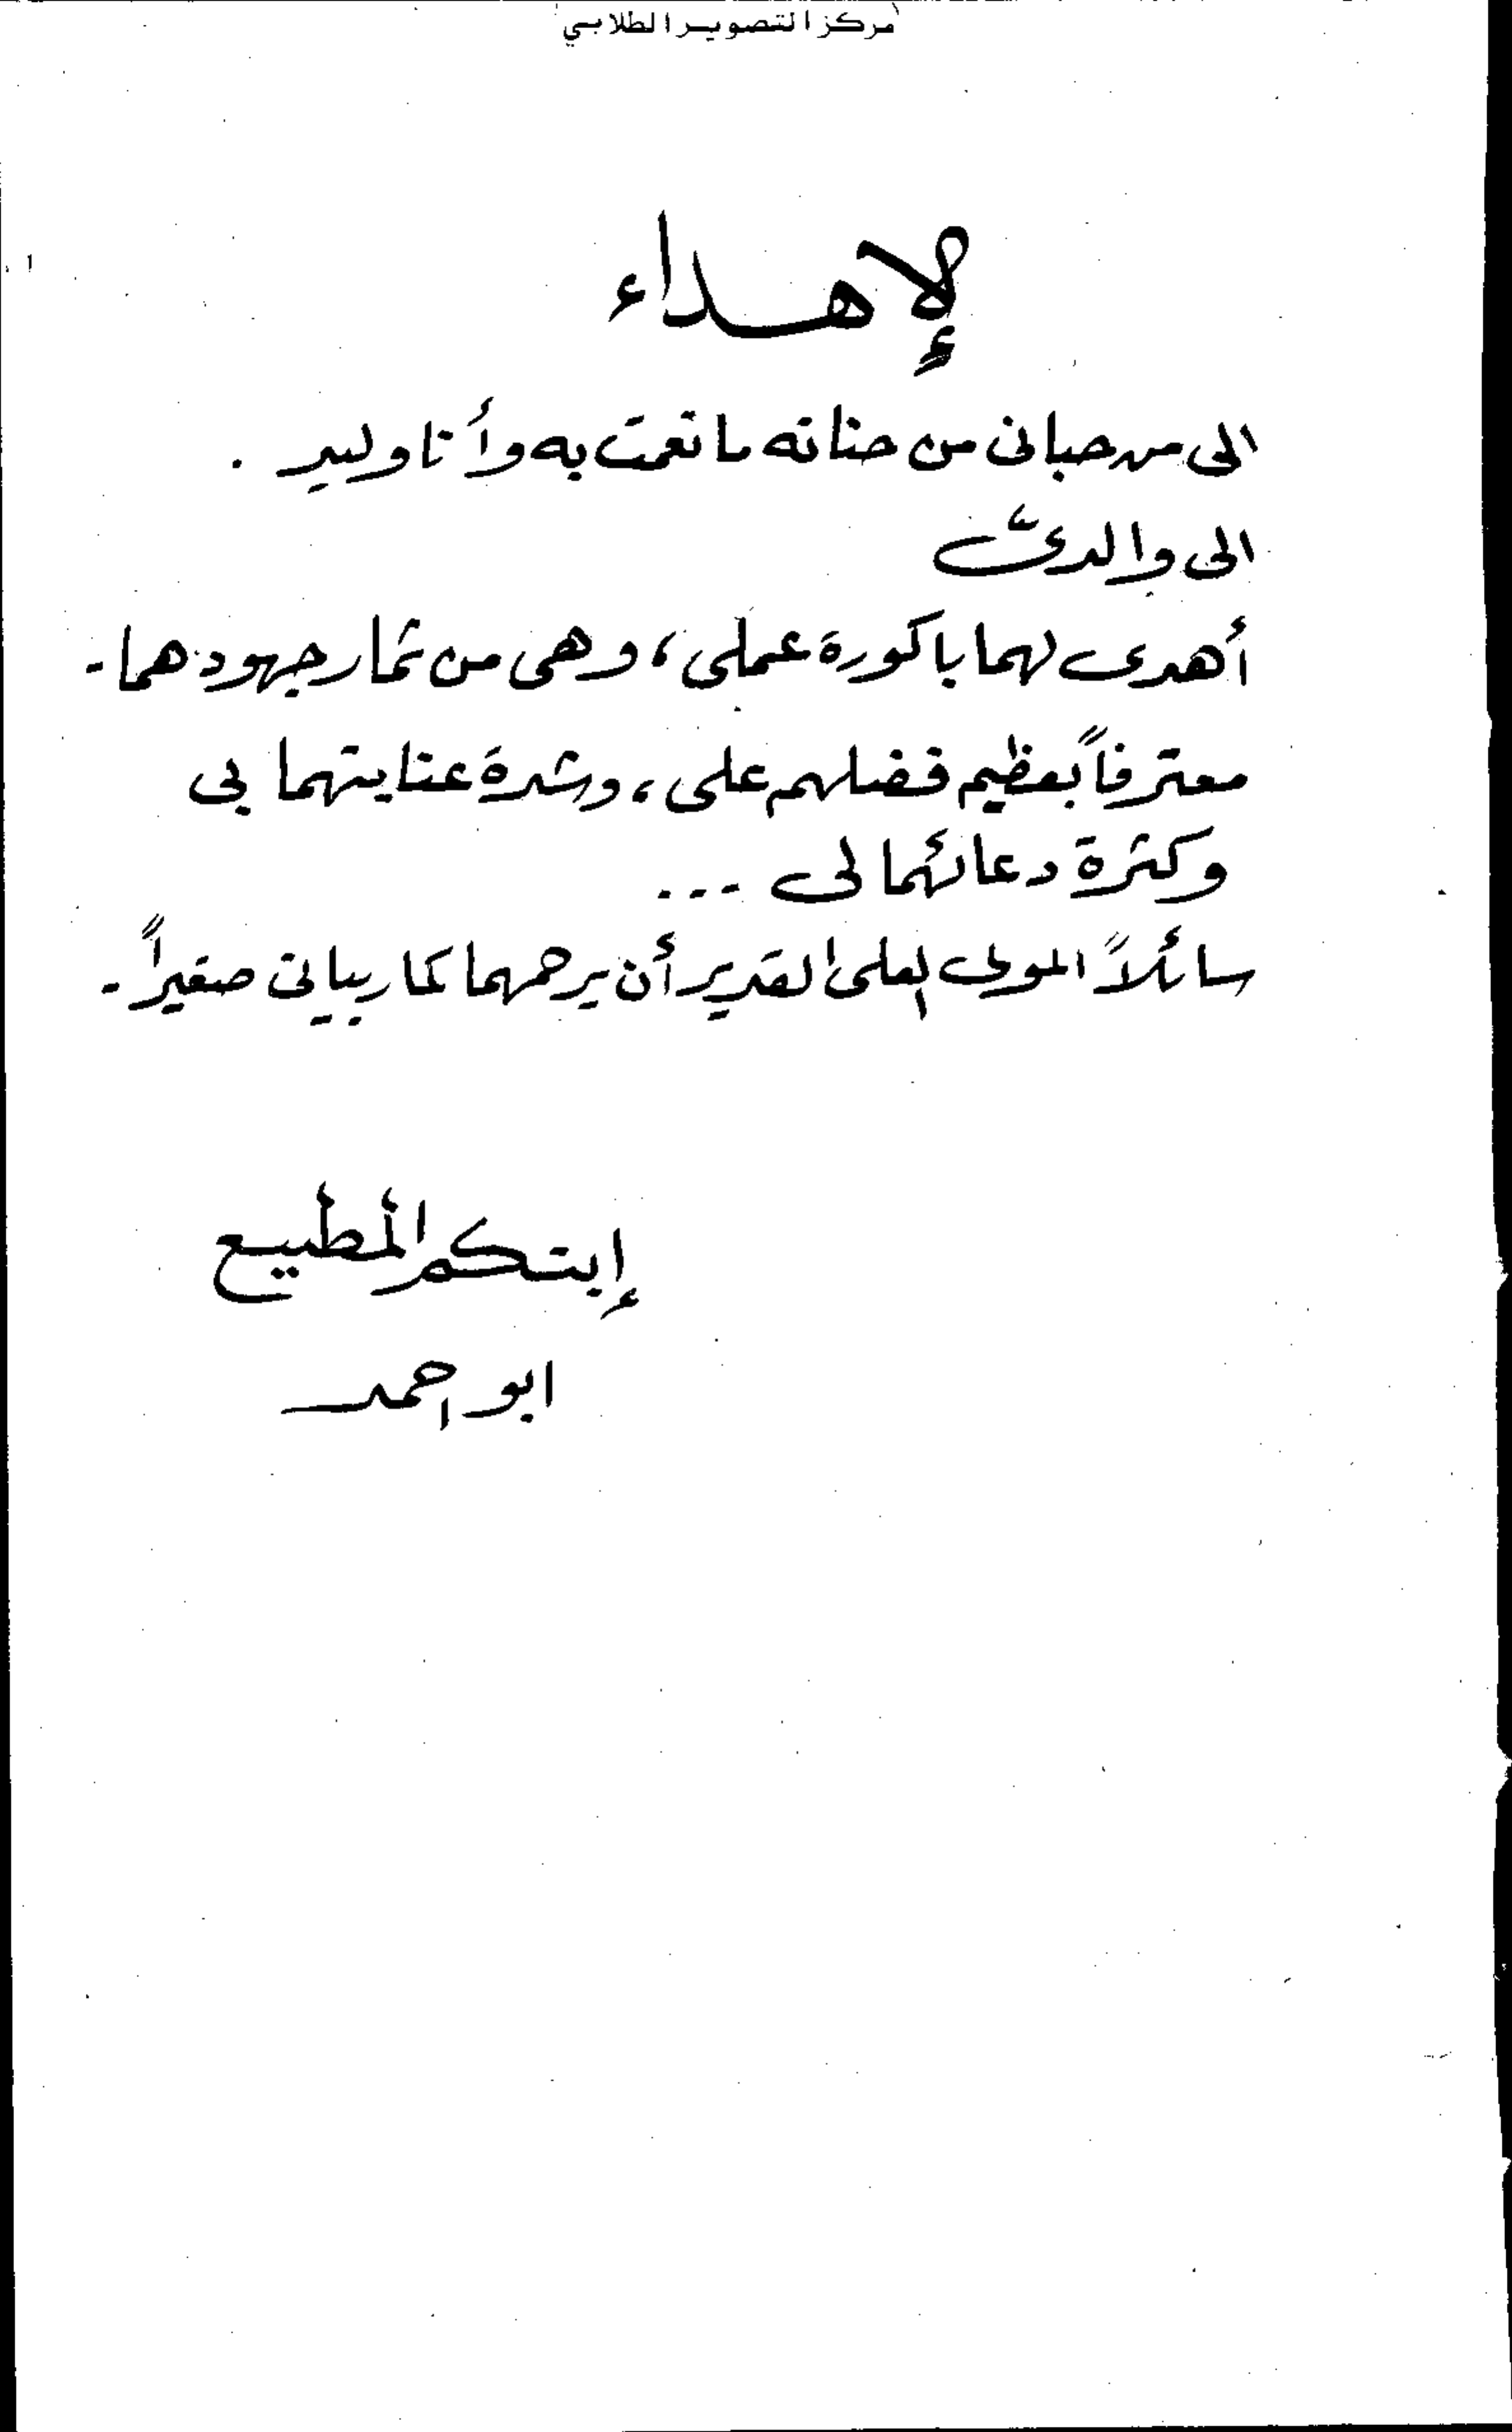 مركز التصوير الطلابي
لإهداء
الى من حبانى من حنانه ما نعمت به وأنا وليد .
الى والدىَّ
أهدى لهما باكورة عملى، وهى من ثمار جهودهما .
معترفاً بعظيم فضلهم على، وشدة عنايتهما بى
وكثرة دعائهما لى ...
سائلاً المولى العلى القدير أن يرحمهما كما ربيانى صغيراً .
إبنكم المطيع
ابو احمد